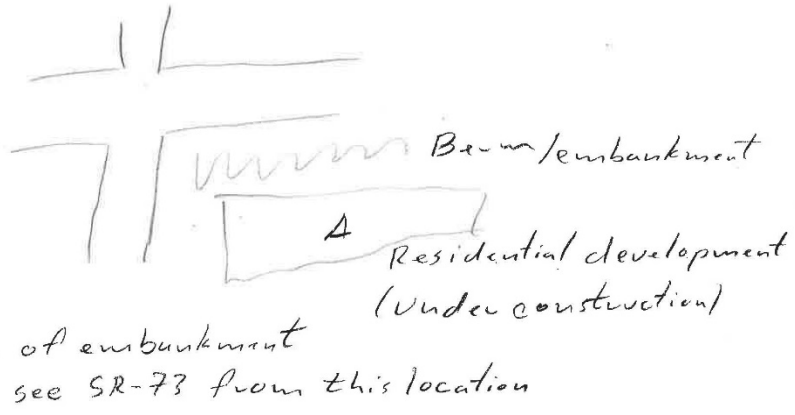 Berm/embankment
Δ
Residential development
(under construction)
of embankment
see SR-73 from this location